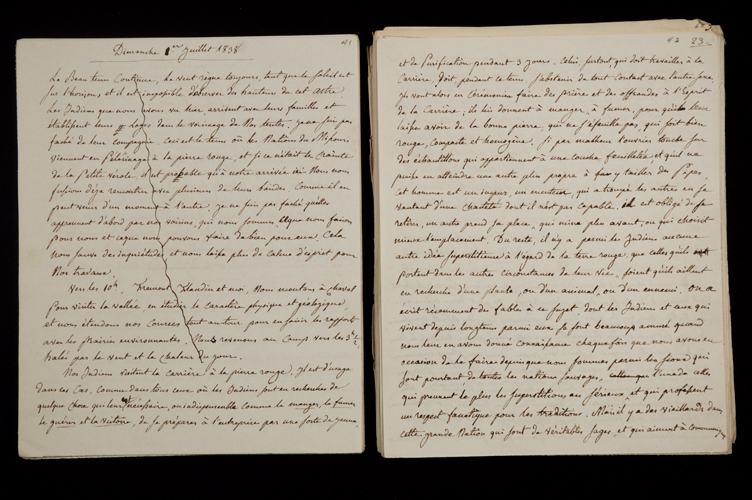 41
Dimanche 1er Juillet 1838
Le Beau tems Continue, Le vent règne toujours, tant que le Soleil est
sur l'horizon, et il est impossible d'observer des hauteurs de cet Astre.
Les Indiens que nous vu hier arrivent avec leurs familles et
établissent leurs loges dans le voisinage de Nos tentes. Je ne suis pas
faché de leur Compagnie. Ceci est le tems où les Nations du Missouri
viennent en Pélerinage à la pierre rouge, et si ce n'était la Crainte
de la Petite vérole, il est probable qu'à notre arrivée ici Nous nous
fussions déja rencontrés avec plusieurs de leurs bandes. Comme il en
peut venir d'un moment à l'autre, je ne suis pas faché qu'ils
apprennent d'abord par nos voisins, qui nous sommes, ce que nous faisons
pour nous et ce que nous pouvons faire de bien pour eux. Cela
nous sauve des inquiétudes et nous laisse plus de calme d'esprit pour
Nos travaux.
Vers les 10h. Fremont, Flandin et moi, Nous montons à cheval
Pour visiter la vallée, en étudier le caractère physique et géologique,
et nous étendons nos Courses tout autour pour en saisir les rapports
avec les Prairies environnantes. Nous revenons au Camp vers les 3h ½
halés par le vent et la Chaleur du jour.
Nos Indiens visitent la carrière à la pierre rouge. Il est d'usage
dans ce Cas, Comme dans tous ceux où les Indiens sont en recherches de
quelque chose qui leur est nécessaire, ou indispensable comme le manger, la fumer,
la guérir et la victoire, de se préparer à l'entreprise par une sorte de jeune,
42 83
et de Purification pendant 3 jours. Celui surtout qui doit travailler à la
Carrière, doit pendant ce tems s'abstenir de tout Contact avec l'autre sexe.
Ils vont alors en Cérémonie faire des prières et des offrandes à l'Esprit
de la Carrière, ils lui donnent à manger, à fumer, pour qu'il leur
laisse avoir de la bonne pierre, qui ne s'éfeuille pas, qui soit bien
rouge, Compacte et homogène. Si par malheur l'ouvrier tombe sur
des échantillons qui appartiennent à une couche feuilletée, et qu'il ne
puisse en atteindre une autre plus propre à y tailler des Pipes,
cet homme est un impur, un menteur qui a trompé les autres en se
vantant d'une Chasteté dont il n'est pas capable. Il est obligé de se
retirer, un autre prend sa place, qui mine plus avant, ou qui choisit
mieux l'emplacement. Du reste, il n'y a parmi les Indiens aucune
autre idée superstitieuse à l'égard de la terre rouge, que celles qu'ils
portent dans les autres circonstances de leur vie, soient qu'ils aillent
en recherche d'une plante, ou d'un animal, ou d'un ennemi. On a
écrit récemment des fables à ce sujet, dont les Indiens et ceux qui
vivent depuis longtems parmi eux se sont beaucoup amusé quand
nous leur en avons donné connaissance chaque fois que nous avons eu
occasion de le faire depuis que nous sommes parmi les Sioux qui
sont pourtant de toutes les nations sauvages, celle
qui prennent le plus les superstitions au sérieux, et qui professent
un respect fanatique pour les traditions. Mais il y a des vieillards dans
cette grande Nation qui sont de véritables sages, et qui aiment à